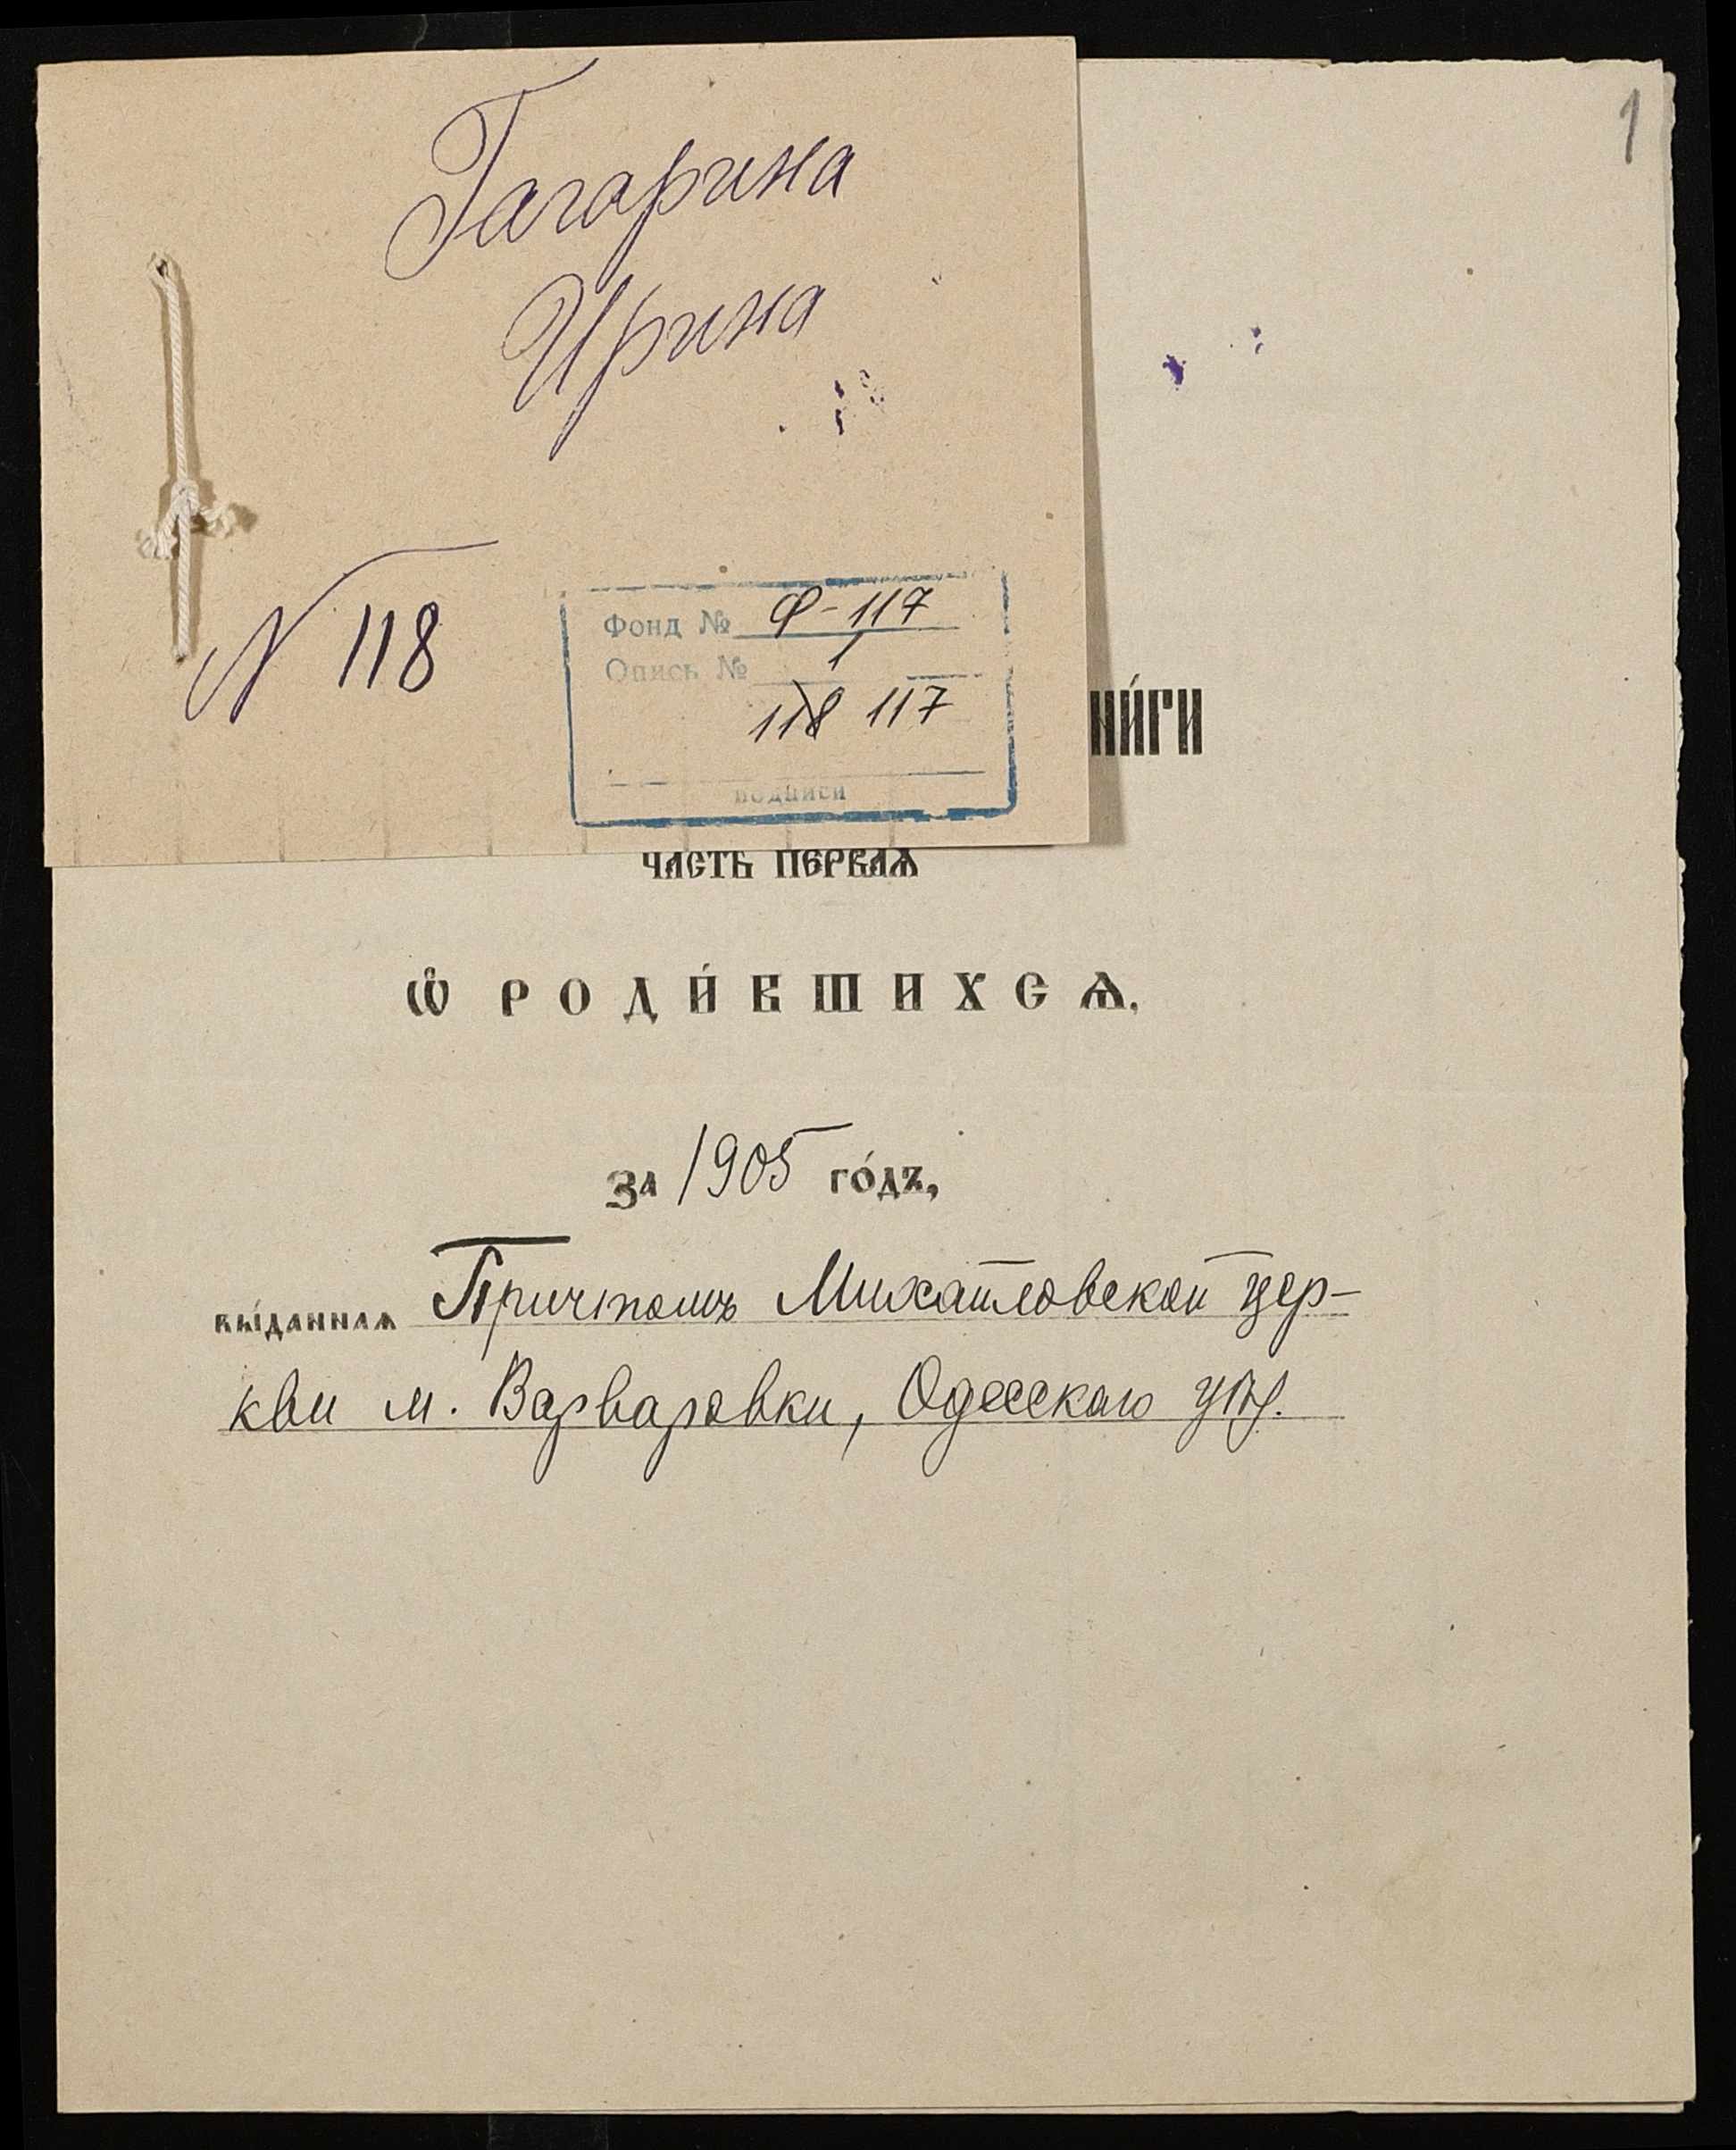 1
Гагарина
Ирина
N 118
Фонд № Ф-117
Опись № 1
118 117
подписи
НИ́ГИ
ЧАСТЬ ПЕРВАѦ
Ѡ҆ РОДИ́ВШИХСѦ,
ЗА 1905 ГО́ДЪ,
ВЫ́ДАННАѦ Причтомъ Михайловской цер-
кви м. Варваровки, Одесскаго уѣз.